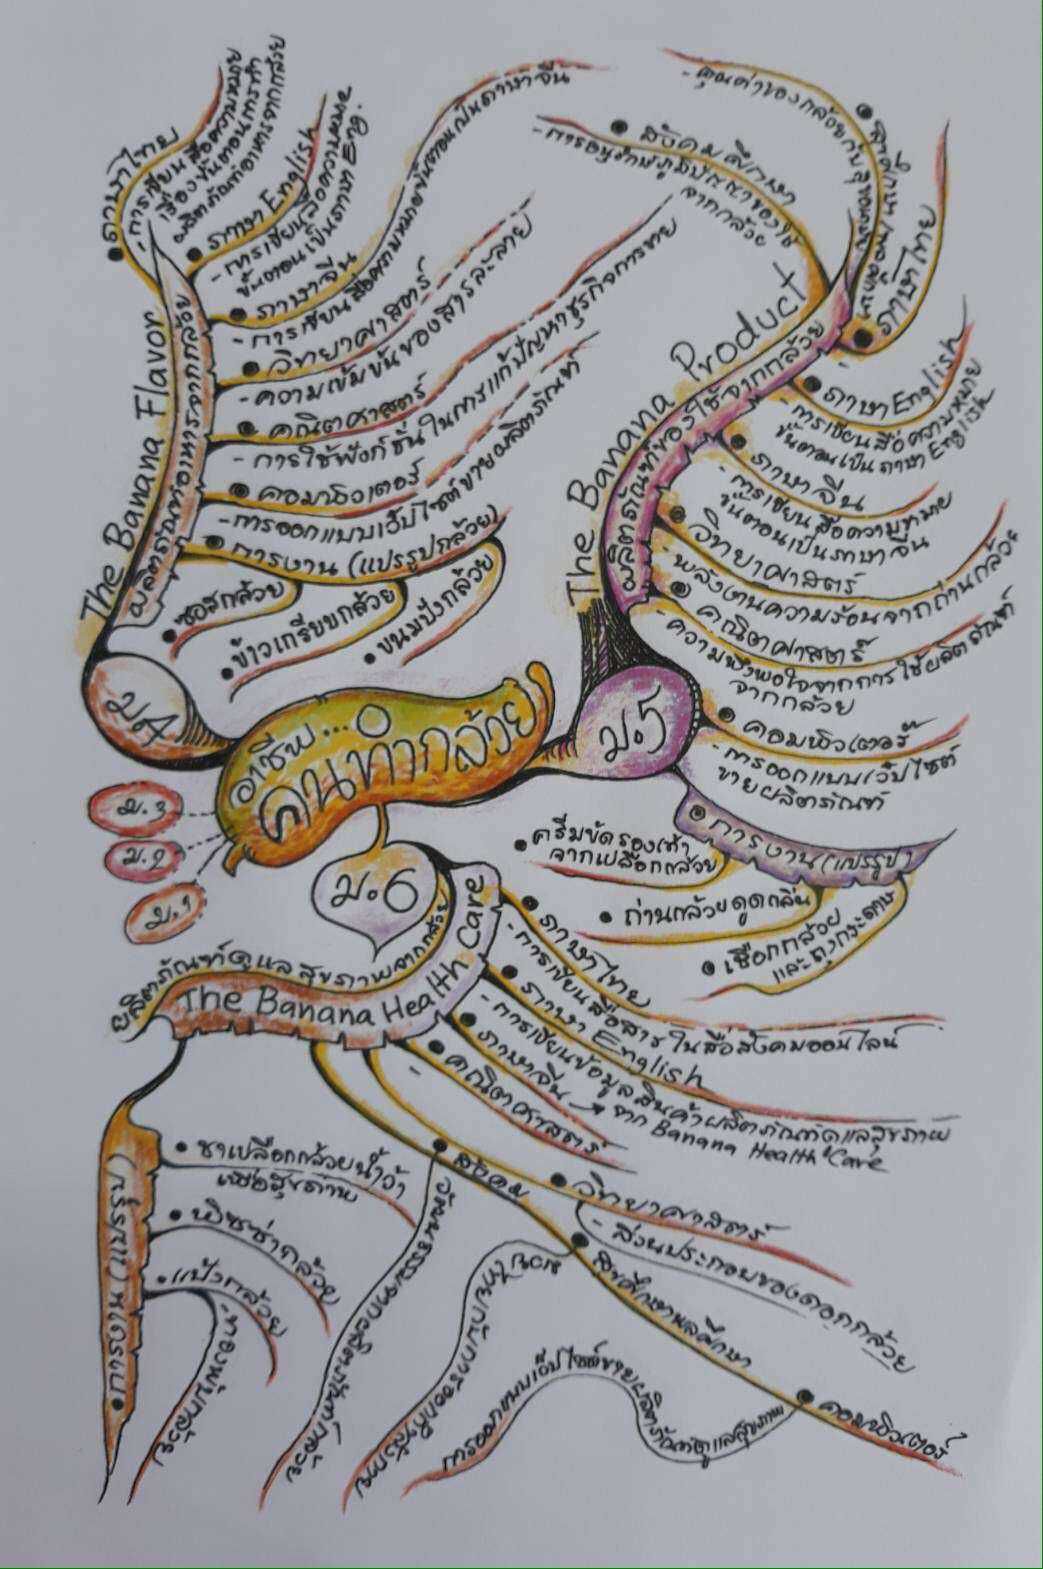 อาชีพ...
คนทำกล้วย
ม.4
The Banana Flavor
ผลิตภัณฑ์อาหารจากกล้วย
ภาษาไทย
- การเขียนสื่อความหมาย
เรื่องขั้นตอนการทำ
ผลิตภัณฑ์อาหารจากกล้วย
ภาษา English
- การเขียนสื่อความหมาย
ขั้นตอนเป็นภาษา Eng.
ภาษาจีน
- การเขียนสื่อความหมายขั้นตอนเป็นภาษาจีน
วิทยาศาสตร์
- ความเข้มข้นของสารละลาย
คณิตศาสตร์
- การใช้ฟังก์ชั่นในการแก้ปัญหาธุรกิจการขาย
คอมพิวเตอร์
- การออกแบบเว็บไซต์ขายผลิตภัณฑ์
การงาน (แปรรูปกล้วย)
ซอสกล้วย
ข้าวเกรียบกล้วย
ขนมปังกล้วย
ม.5
The Banana Product
ผลิตภัณฑ์ของใช้จากกล้วย
สังคมศึกษา
- การอนุรักษ์ภูมิปัญญาของใช้
จากกล้วย
สุขศึกษา
- คุณค่าของกล้วยกับสุขภาพ
ภาษาไทย
ภาษา English
- การเขียนสื่อความหมาย
ขั้นตอนเป็นภาษา English
ภาษาจีน
- การเขียนสื่อความหมาย
ขั้นตอนเป็นภาษาจีน
วิทยาศาสตร์
- พลังงานความร้อนจากถ่านกล้วย
คณิตศาสตร์
ความพึงพอใจจากการใช้ผลิตภัณฑ์
จากกล้วย
คอมพิวเตอร์
- การออกแบบเว็บไซต์
ขายผลิตภัณฑ์
การงาน (แปรรูป)
ครีมขัดรองเท้า
จากเปลือกกล้วย
ถ่านกล้วยดูดกลิ่น
เชือกกล้วย
และถุงกระดาษ
ม.3
ม.2
ม.1
ม.6
ผลิตภัณฑ์ดูแลสุขภาพจากกล้วย
The Banana Health Care
ภาษาไทย
- การเขียนสื่อสารในสื่อสังคมออนไลน์
ภาษา English
- การเขียนข้อมูลสินค้าผลิตภัณฑ์ดูแลสุขภาพ
ภาษาจีน → จาก Banana Health Care
คณิตศาสตร์
-
สังคม
วัฒนธรรมการผลิตภัณฑ์กล้วย
วิทยาศาสตร์
- ส่วนประกอบของดอกกล้วย
สุขศึกษาพลศึกษา
กล้วยกับการออกกำลังกาย
คอมพิวเตอร์
การออกแบบเว็บไซต์ขายผลิตภัณฑ์ดูแลสุขภาพ
การงาน (แปรรูป)
ชาเปลือกกล้วยน้ำว้า
เพื่อสุขภาพ
พิซซ่ากล้วย
แป้งกล้วย